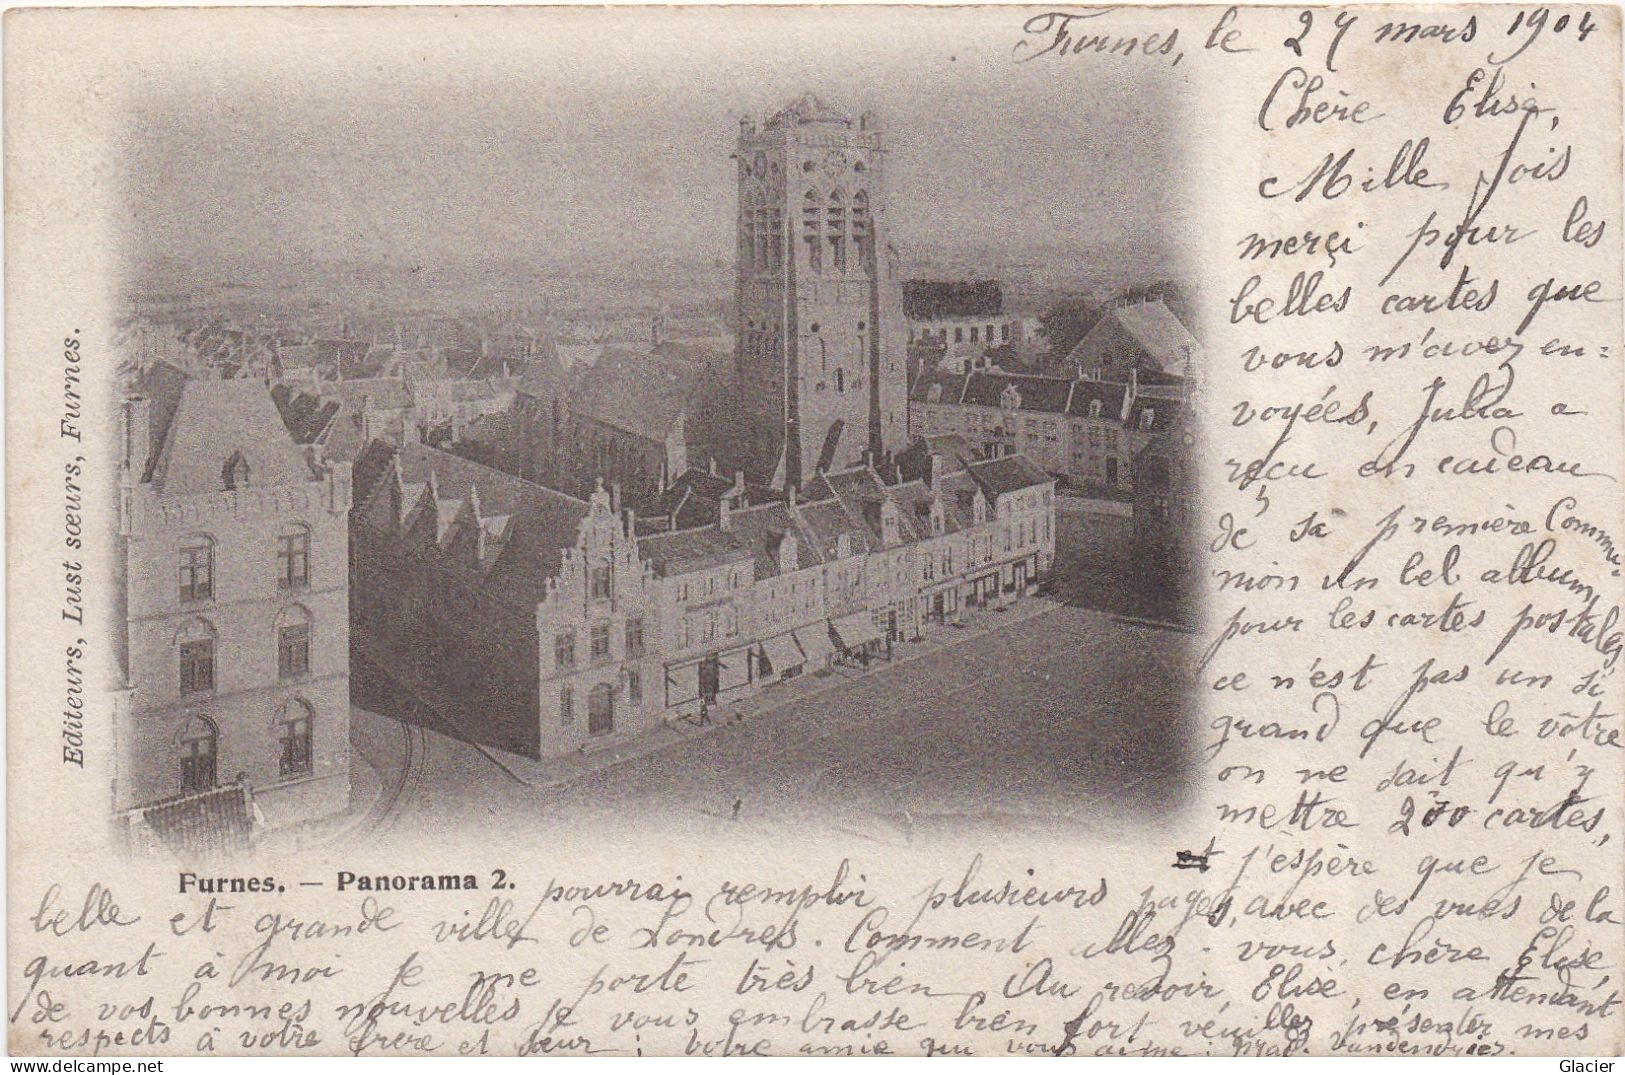 Furnes, le 27 mars 1904
Chère Elise,
Mille fois
merçi pour les
belles cartes que
vous m'avez en=
voyées, Julia a
reçu en cadeau
de sa première Commu-
nion un bel album
pour les cartes postales,
ce n'est pas un si
grand que le vôtre
on ne sait qu'y
mettre 200 cartes,
et j'espère que je
pourrai remplir plusieurs pages, avec des vues de la
belle et grande ville de Londres. Comment allez-vous, chère Elise,
quant à moi je me porte très bien Au revoir, Elise, en attendant
de vos bonnes nouvelles je vous embrasse bien fort veuillez présenter mes
respects à votre frère et sœur ; Votre amie qui vous aime :
Editeurs, Lust sœurs, Furnes.
Furnes. — Panorama 2.
Glacier